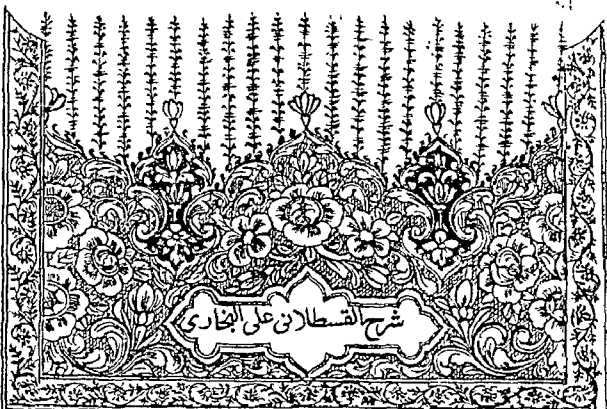 شرح القسطلانى على البخارى